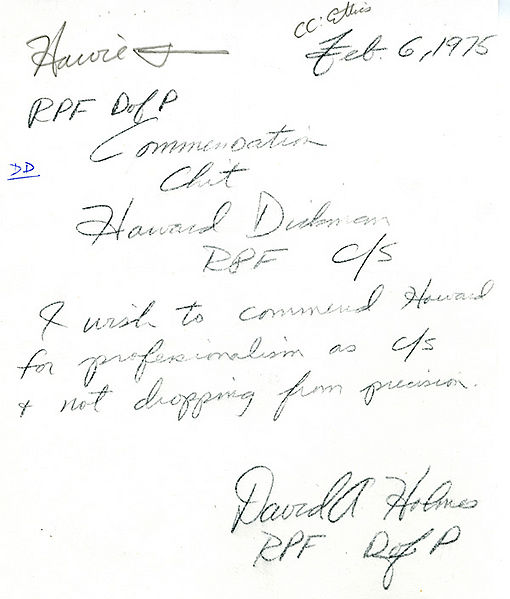 CC: Ethics
Feb. 6, 1975
Howie
RPF D of P
Commendation
Chit
DD
Howard Dickman
RPF C/S
I wish to commend Howard
for professionalism as C/S
+ not dropping from precision.
David A Holmes
RPF D of P